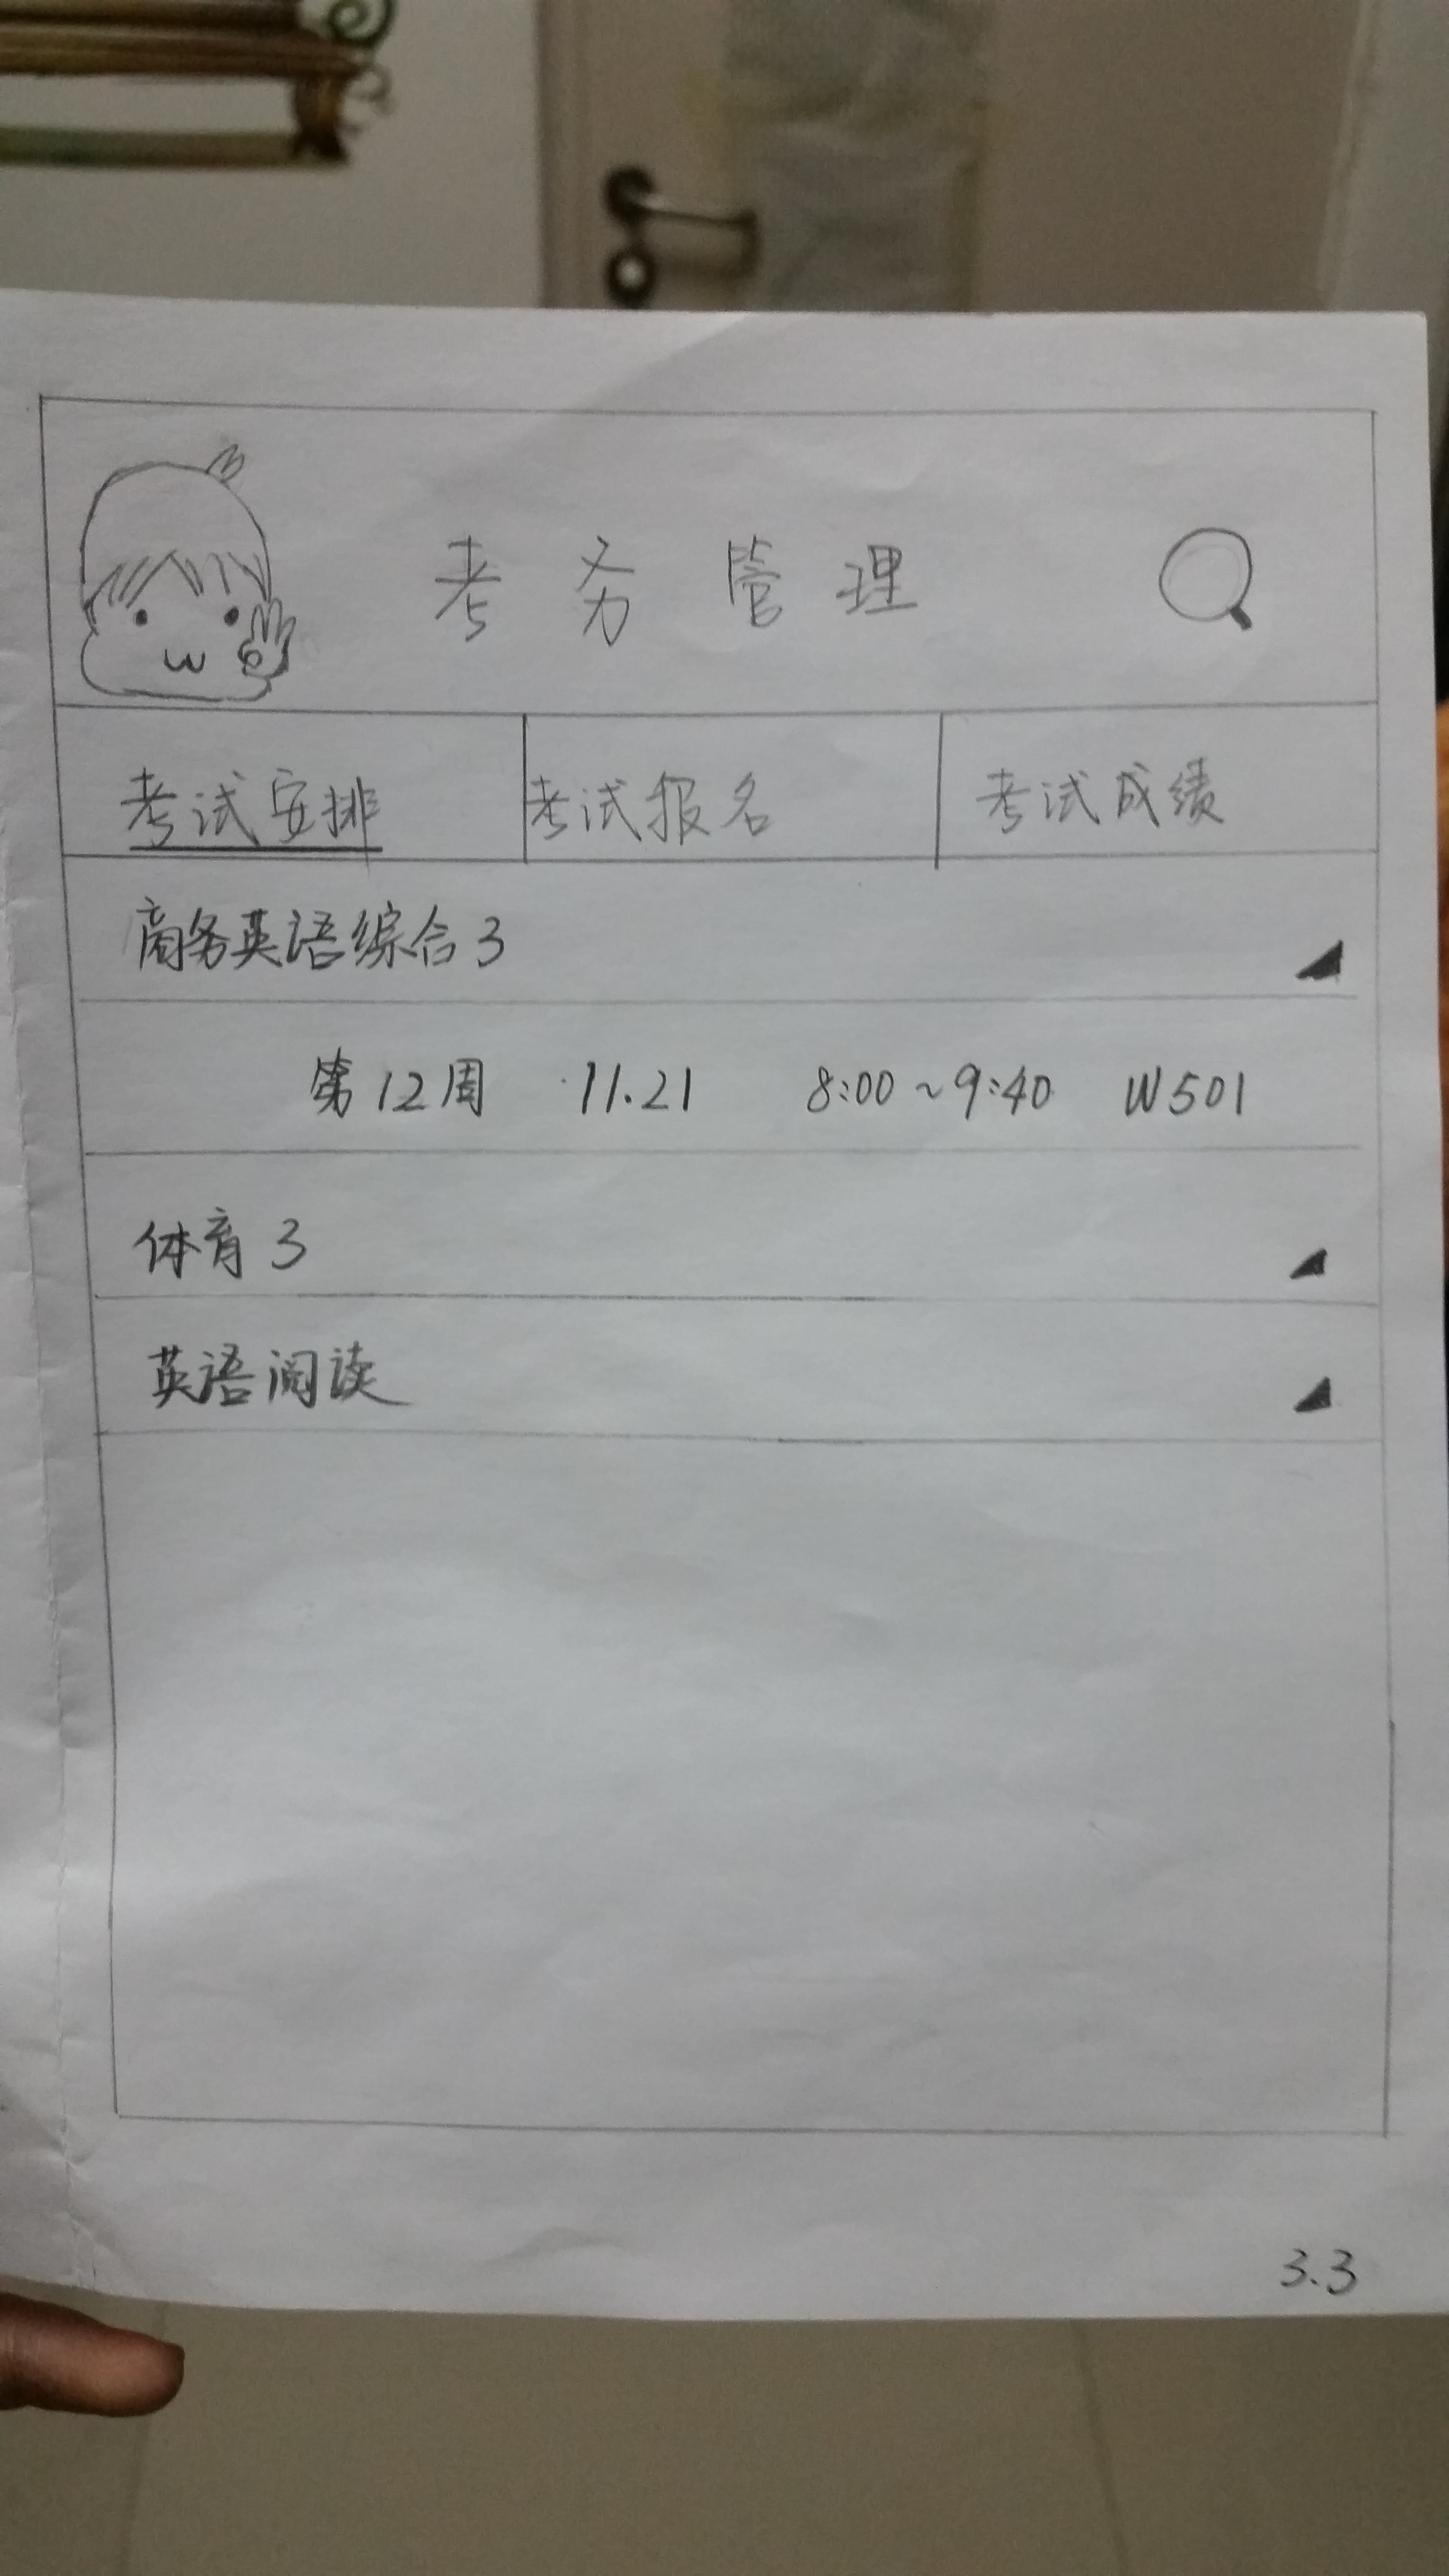 考务管理
考试安排 考试报名 考试成绩
商务英语综合3
第12周 11.21 8:00~9:40 W501
体育3
英语阅读
3.3